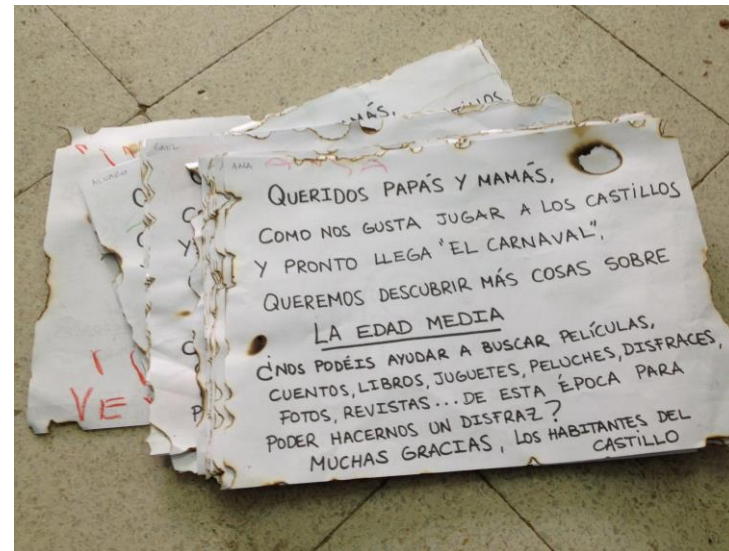 ANA
ANA
QUERIDOS PAPÁS Y MAMÁS,
COMO NOS GUSTA JUGAR A LOS CASTILLOS
Y PRONTO LLEGA "EL CARNAVAL",
QUEREMOS DESCUBRIR MÁS COSAS SOBRE
LA EDAD MEDIA
¿NOS PODÉIS AYUDAR A BUSCAR PELÍCULAS,
CUENTOS, LIBROS, JUGUETES, PELUCHES, DISFRACES,
FOTOS, REVISTAS... DE ESTA ÉPOCA PARA
PODER HACERNOS UN DISFRAZ?
MUCHAS GRACIAS, LOS HABITANTES DEL
CASTILLO
GAEL
ALVARO
MÁS,